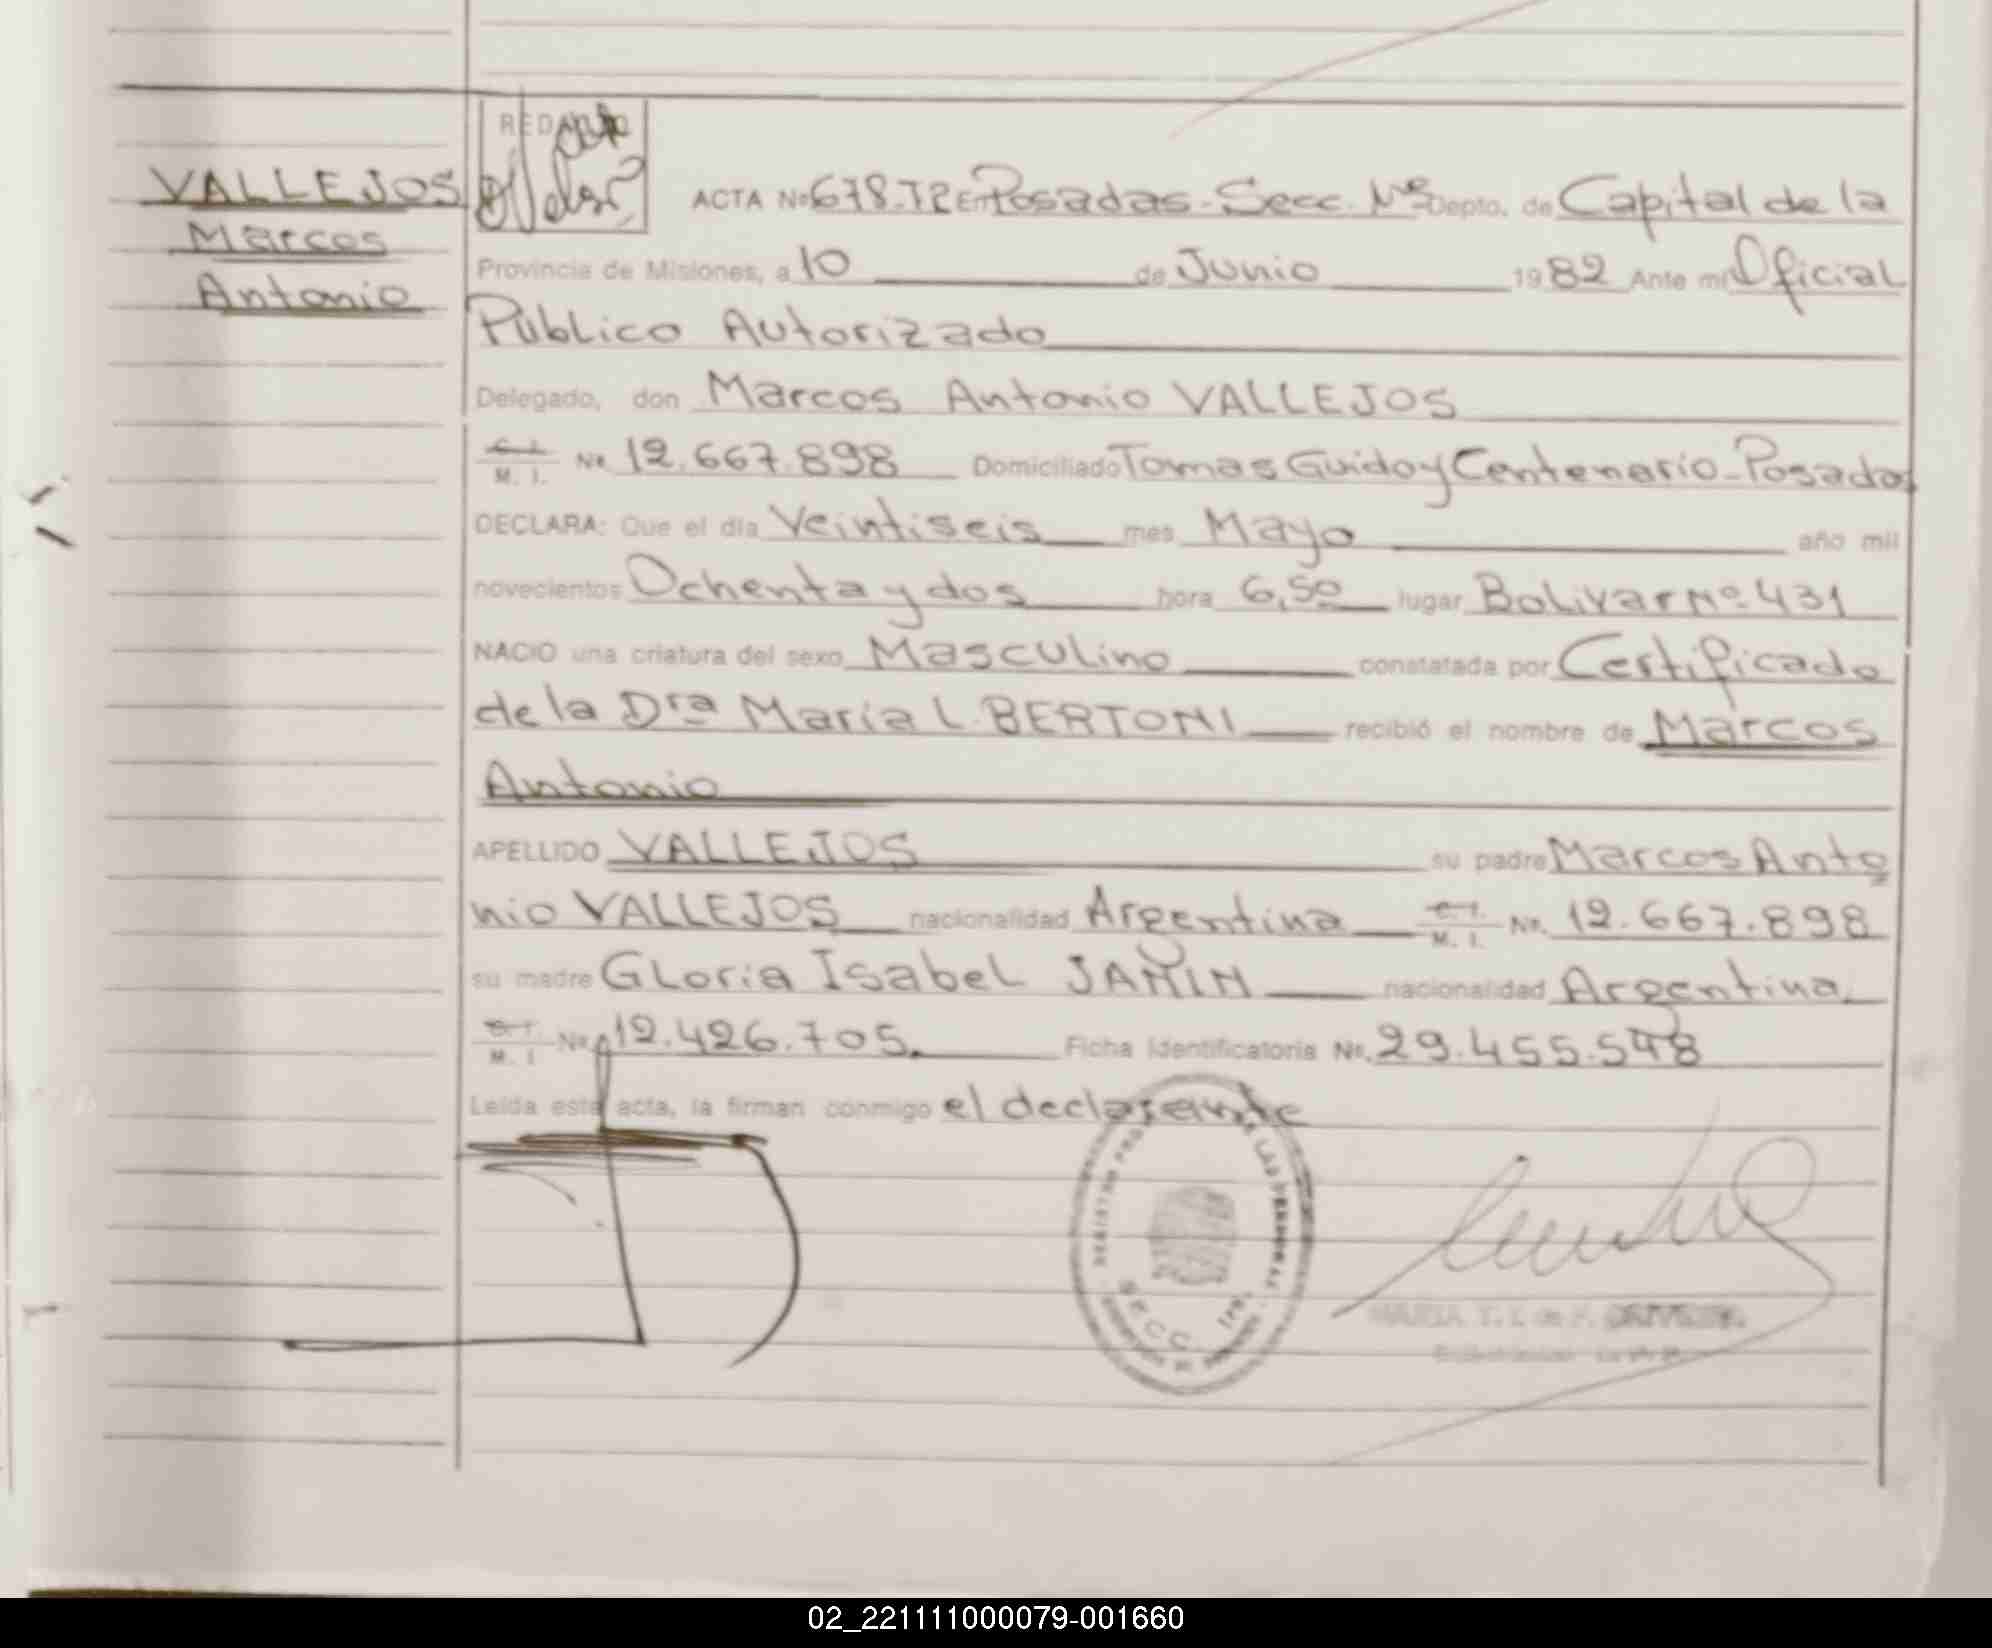 VALLEJOS
Marcos
Antonio
ACTA Nº 678-T2 En Posadas-Secc. Mº Depto. de Capital de la
Provincia de Misiones, a 10 de Junio 1982 Ante mí Oficial
Público Autorizado
Delegado, don Marcos Antonio VALLEJOS
C. I. M. I. Nº 12.667.898 Domiciliado Tomas Guido y Centenario-Posadas
DECLARA: Que el día Veintiseis mes Mayo año mil
novecientos Ochenta y dos hora 6,50 lugar Bolivar Nº 431
NACIO una criatura del sexo Masculino constatada por Certificado
de la Dra María L. BERTONI recibió el nombre de Marcos
Antonio
APELLIDO VALLEJOS su padre Marcos Anto
nio VALLEJOS nacionalidad Argentina C. I. M. I. Nº. 12.667.898
su madre Gloria Isabel JAÑIN nacionalidad Argentina
C. I. M. I. Nº 12.426.705. Ficha Identificatoria Nº. 29.455.548
Leída esta acta, la firman conmigo el declarante
SECC. 1ra.
02_221111000079-001660